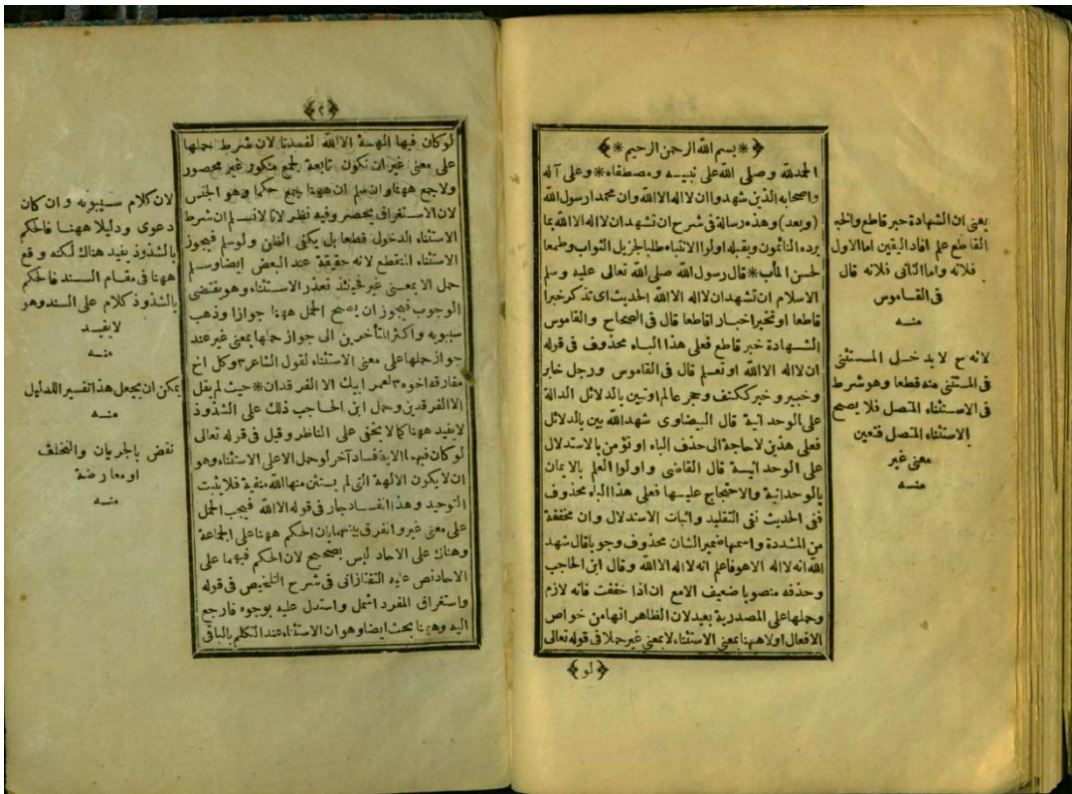 ﴿ * بسم الله الرحمن الرحيم * ﴾
الحمدلله وصلى الله على نبيه ومصطفاه * وعلى آله
واصحابه الذين شهدوا ان لا اله الا الله وان محمدا رسول الله
(وبعد) وهذه رسالة فى شرح ان تشهد ان لا اله الا الله بما
يرده النائمون ويقبله اولوا الانتباه طلبا لجزيل الثواب وطمعا
لحسن المأب * قال رسول الله صلى الله تعالى عليه وسلم
الاسلام ان تشهد ان لا اله الا الله الحديث اى تذكر خبرا
قاطعا او تخبر اخبارا قاطعا قال فى الصحاح والقاموس
الشهادة خبر قاطع فعلى هذا الباء محذوف فى قوله
ان لا اله الا الله او تعلم قال فى القاموس ورجل خابر
وخبير وخبر ككتف وحجر عالم او تبين بالدلائل الدالة
على الوحدانية قال البيضاوى شهد الله بين بالدلائل
فعلى هذين لا حاجة الى حذف الباء او نؤمن بالاستدلال
على الوحدانية قال القاضى واولوا العلم بالايمان
بالوحدانية والاحتجاج عليها فعلى هذا الباء محذوف
ففى الحديث نفى التقليد واثبات الاستدلال وان مخففة
من المشددة واسمها ضمير الشان محذوف وجوبا قال شهد
الله انه لا اله الا هو فاعلم انه لا اله الا الله وقال ابن الحاجب
وحذفه منصوبا ضعيف الا مع ان اذا خففت فانه لازم
وحملها على المصدرية بعيد لان الظاهر انها من خواص
الافعال او لا ههنا بمعنى الاستثناء لا بمعنى غير حملا فى قوله تعالى
﴿ لو ﴾
يعنى ان الشهادة خبر قاطع والخبر
القاطع علم افاد اليقين اما الاول
فلانه واما الثانى فلانه قال
فى القاموس
منه
لانه ح لا يدخل المستثنى
فى المستثنى منه قطعا وهو شرط
فى الاستثناء المتصل فلا يصح
الاستثناء المتصل فتعين
معنى غير
منه
﴿ ٢ ﴾
لو كان فيهما الهة الا الله لفسدتا لان شرط حملها
على معنى غير ان تكون تابعة لجمع منكور غير محصور
ولا جمع ههنا وان سلم ان ههنا جمع حكما وهو الجنس
لان الاستغراق يحصر وفيه نظر لانا لا نسلم ان شرط
الاستثناء الدخول قطعا بل يكفى الظن ولو سلم فيجوز
الاستثناء المنقطع لانه حقيقة عند البعض ايضا وسلم
حمل الا بمعنى غير فحينئذ تعذر الاستثناء وهو يقتضى
الوجوب فيجوز ان يصحح الحمل ههنا جوازا وذهب
سيبويه واكثر المتأخرين الى جواز حملها بمعنى غير عند
جواز حملها على معنى الاستثناء لقول الشاعر ٣ وكل اخ
مفارقه اخوه * لعمر ابيك الا الفرقدان * حيث لم يقل
الا الفرقدين وحمل ابن الحاجب ذلك على الشذوذ
لا يفيد ههنا كما لا يخفى على الناظر وقيل فى قوله تعالى
لو كان فيهما الاية فساد آخر لو حمل الا على الاستثناء وهو
ان لا يكون الالهة التى لم يستثن منها الله منفية فلا يثبت
التوحيد وهذا الفساد جار فى قوله الا الله فيجب الحمل
على معنى غير والفرق بينهما بان الحكم ههنا على الجماعة
وهناك على الاحاد ليس بصحيح لان الحكم فيهما على
الاحاد نص عليه التفتازانى فى شرح التلخيص فى قوله
واستغراق المفرد اشمل واستدل عليه بوجوه فارجع
اليه وههنا بحث ايضا وهو ان الاستثناء عند التكلم بالباقى
لان كلام سيبويه وان كان
دعوى ودليلا ههنا فالحكم
بالشذوذ يفيد هناك لكنه وقع
ههنا فى مقام السند فالحكم
بالشذوذ كلام على السند وهو
لا يفيد
منه
يمكن ان يجعل هذا تفسير الدليل
منه
نقض بالجريان والتخلف
او معارضة
منه